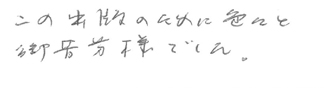 この出版のために色々と
御苦労様でした。